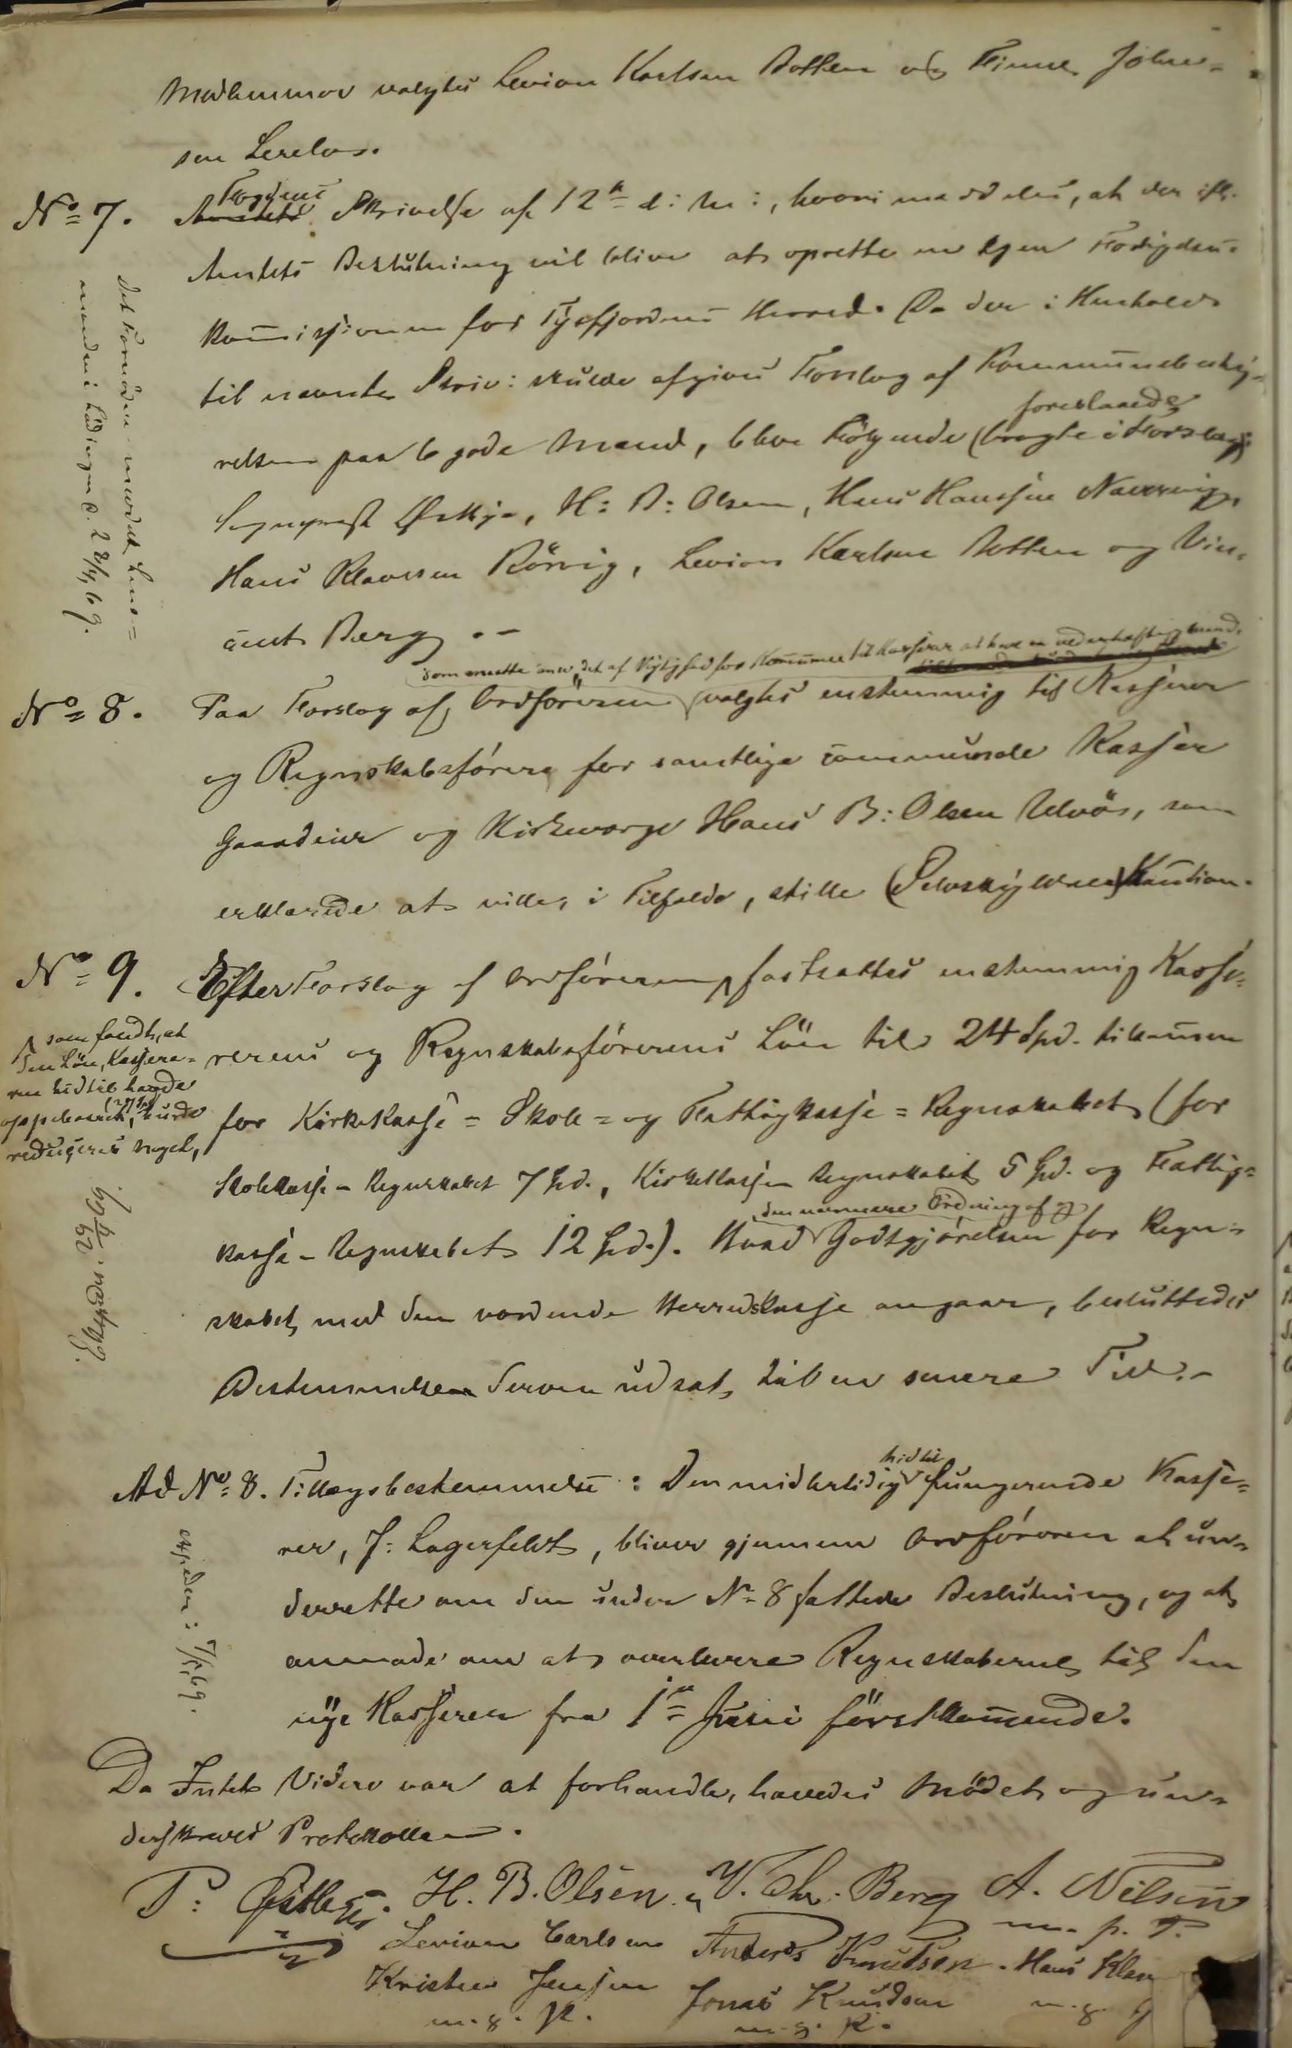 Medlemmer valgtes Levion Karlsen Botten og Finne John-
sen Lerelv.
No 7. Fogdens Skrivelse af 12te d: M:, hvori meddeles, at der ifl.
Amtets Beslutning vil blive at oprette en egen Forligdses-
kommission for Tysfjordens Herred. Da der i Henhold
til nævnte Skriv: skulde afgives Forslag af Kommunebesty-
relsen paa 6 gode Mænd, bleve Følgende (bragte i Forslag)
foreslaaede
Sogneprest Østbye, H: B: Olsen, Hans Hanssen
Hans Klaussen Rörvig, Levion Karlsen Botten og Vin-
cent Berg .-
Det Fornødne meddelt Lens-
manden i Lødingen d. 28/4 69.
som maatte anse det af Vigtighed for Kommunen til Kasserer at have en vederhæftig Mand,
No 8. Paa Forslag af Ordföreren valgtes enstemmig til Kasserer
og Regnskabsförere for samtlige communale Kasser
Gaardeier og Kirkeværge Hans B: Olsen Ulvös, som
erklærede at ville, i Tilfælde, stille (Selvskyldner) Kaution.
No 9. Efter Forslag af Ordföreren fastsattes enstemmig Kasse-
rerens og Regnskabsförerens Lön til 24 Spd. tilsammen
for Kirkekasse- Skole- og Fattigkasse-Regnskabet (for
Skolekasse-Regnskabet 7 Spd., Kirkekasse Regnskabet 5 Spd. og Fattig-
kasse-Regnskabet 12 Spd.). Hvad Godtgjörelsen for Regn-
den nærmere Ordning af og
skabet med den vordende Herredskasse angaar, besluttedes
Bestemmelsen derom udsat til en senere Tid.-
som fandt, at
den Lön, Kassere-
ren hidtil havde
oppebaaret, burde
reduceres noget,
Ad No 8. Tillægsbestemmelse: Den midlertidig hidtil fungerende Kasse-
rer, J: Lagerfeldt, bliver gjennem Ordföreren at un-
derrette om den under No 8 fattede Beslutning, og at
anmode om at overlevere Regnskaberne til den
nye Kasserer fra 1ste Juni förstkommende.
exped: 7/5 69.
Da Intet Videre var at forhandle, hævedes Mödet og un-
derskreves Protokollen.
P: Østbye. H. B. Olsen. V. Chr. Berg A. Nilsen
m. p. P.
Levion Carlsen Anders Knutsen. Hans Klau
Kristen Jensen Jonas Knudsen
m. p. P. m. p. P.